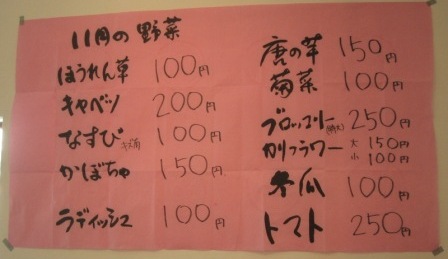 11月の野菜
ほうれん草 100円
キャベツ 200円
なすび 100円
かぼちゃ 150円
ラディッシュ 100円
唐の芋 150円
菊菜 100円
ブロッコリー(特大) 250円
カリフラワー 大 150円
小 100円
冬瓜 100円
トマト 250円